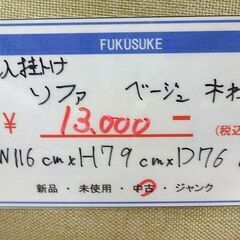 FUKUSUKE
人掛け
ソファ ベージュ 木
¥ 13.000-
(税込
W116cm×H79cm×D76
新品・未使用・中古・ジャンク